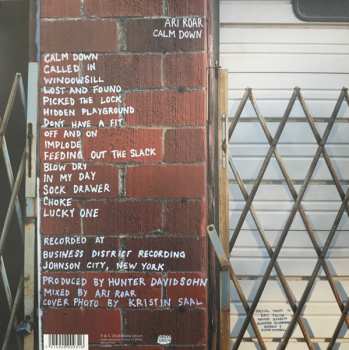 ARI ROAR
CALM DOWN
CALM DOWN
CALLED IN
WINDOWSILL
LOST AND FOUND
PICKED THE LOCK
HIDDEN PLAYGROUND
DON'T HAVE A FIT
OFF AND ON
IMPLODE
FEEDING OUT THE SLACK
BLOW DRY
IN MY DAY
SOCK DRAWER
CHOKE
LUCKY ONE
RECORDED AT
BUSINESS DISTRICT RECORDING
JOHNSON CITY, NEW YORK
PRODUCED BY HUNTER DAVIDSOHN
MIXED BY ARI ROAR
COVER PHOTO BY KRISTIN SAAL